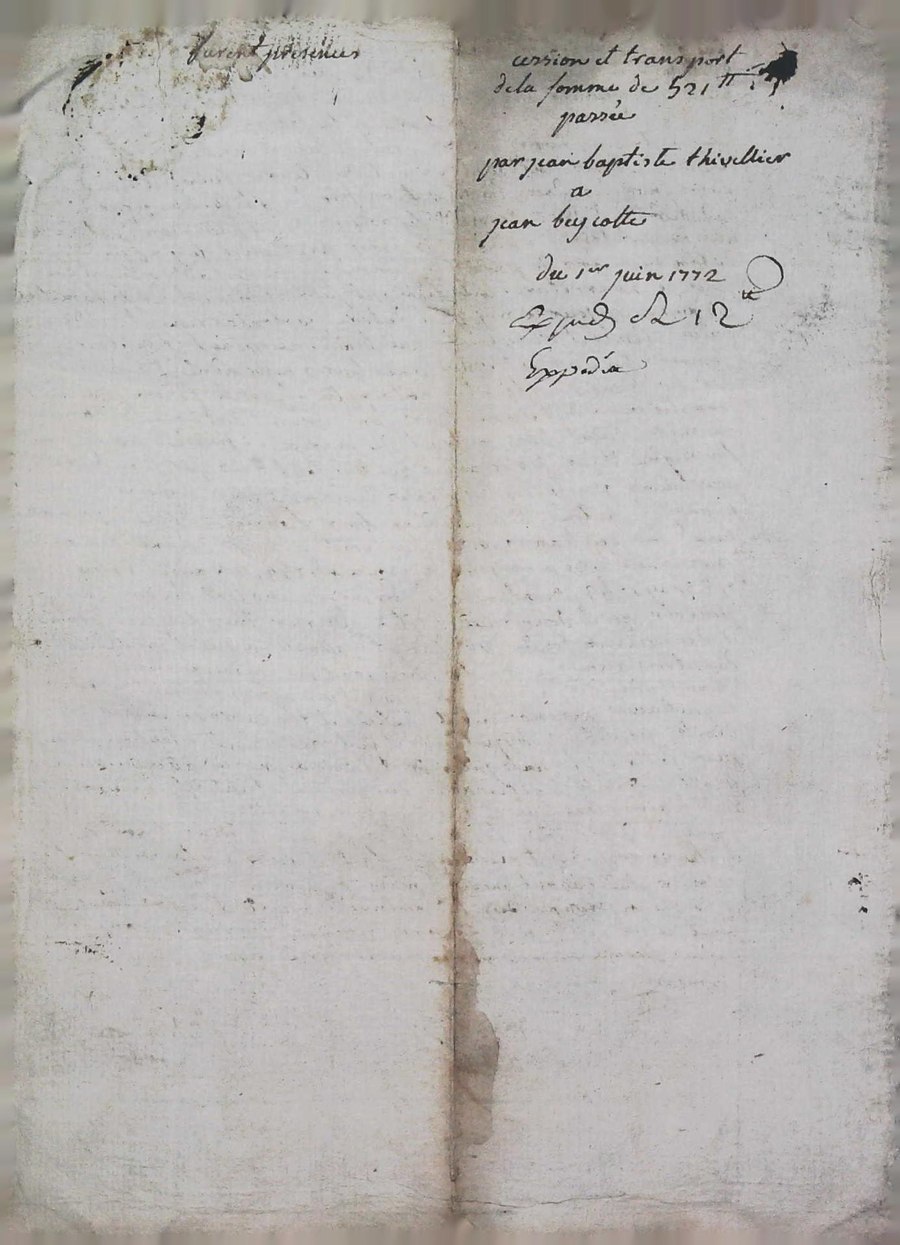 furent présences
cession et transport
dela somme de 521 tt
passée
par jean baptiste thivellier
a
jean buycolte
du 1er juin 1772
12 tt
Expédié